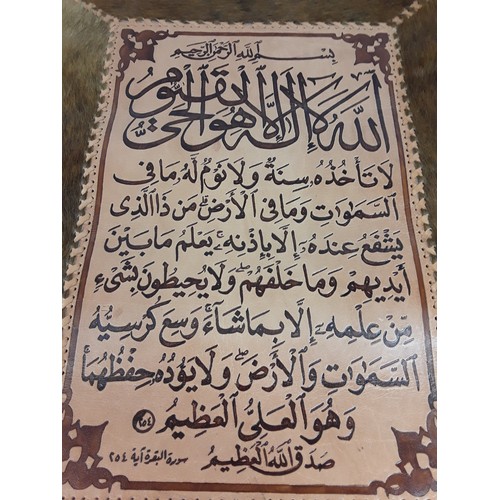 بِسْمِ اللَّهِ الرَّحْمَنِ الرَّحِيمِ
اللَّهُ لَا إِلَهَ إِلَّا هُوَ الْحَيُّ الْقَيُّومُ
لَا تَأْخُذُهُ سِنَةٌ وَلَا نَوْمٌ لَهُ مَا فِي
السَّمَوَاتِ وَمَا فِي الْأَرْضِ مَنْ ذَا الَّذِي
يَشْفَعُ عِنْدَهُ إِلَّا بِإِذْنِهِ يَعْلَمُ مَا بَيْنَ
أَيْدِيهِمْ وَمَا خَلْفَهُمْ وَلَا يُحِيطُونَ بِشَيْءٍ
مِنْ عِلْمِهِ إِلَّا بِمَا شَاءَ وَسِعَ كُرْسِيُّهُ
السَّمَوَاتِ وَالْأَرْضَ وَلَا يَؤُدُهُ حِفْظُهُمَا
وَهُوَ الْعَلِيُّ الْعَظِيمُ ٢٥٤
صَدَقَ اللَّهُ الْعَظِيمُ
سورة البقرة آية ٢٥٤